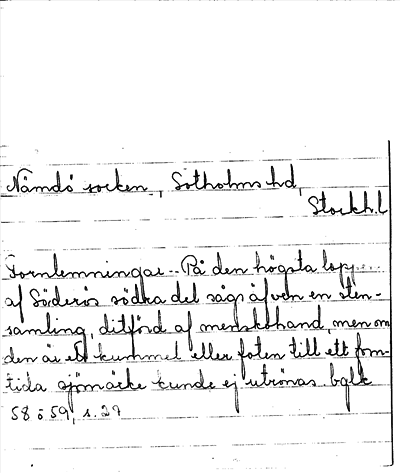 Nämdö socken, Sotholms hd,
Stockh. l
Fornlemningar.. På den högsta
af Söderös södra del sågs äfven en sten-
samling, ditförd af menskohand, men om
den är ett kummel eller foten till ett forn-
tida sjömärke kunde ej utrönas. bglk
58 o 59, s. 29